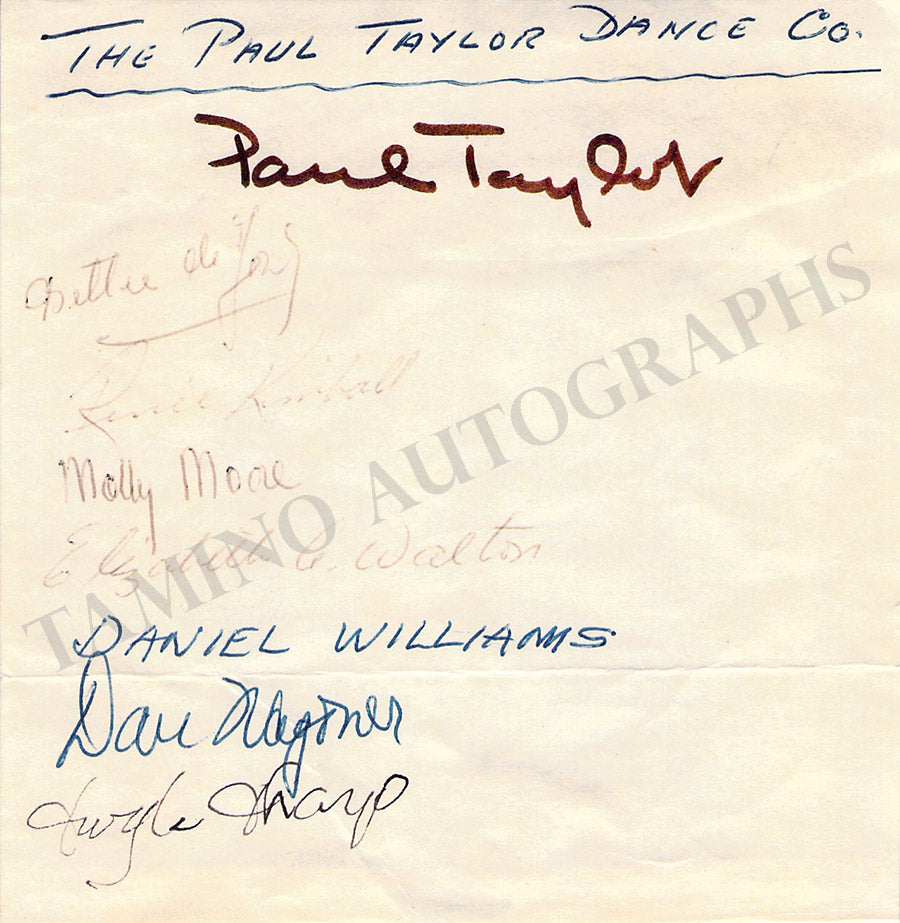 THE PAUL TAYLOR DANCE CO.
Paul Taylor
Bettie de Jong
Renée Kimball
Molly Moore
Elizabeth Walton
TAMINO AUTOGRAPHS
DANIEL WILLIAMS
Dan Wagoner
Twyla Tharp